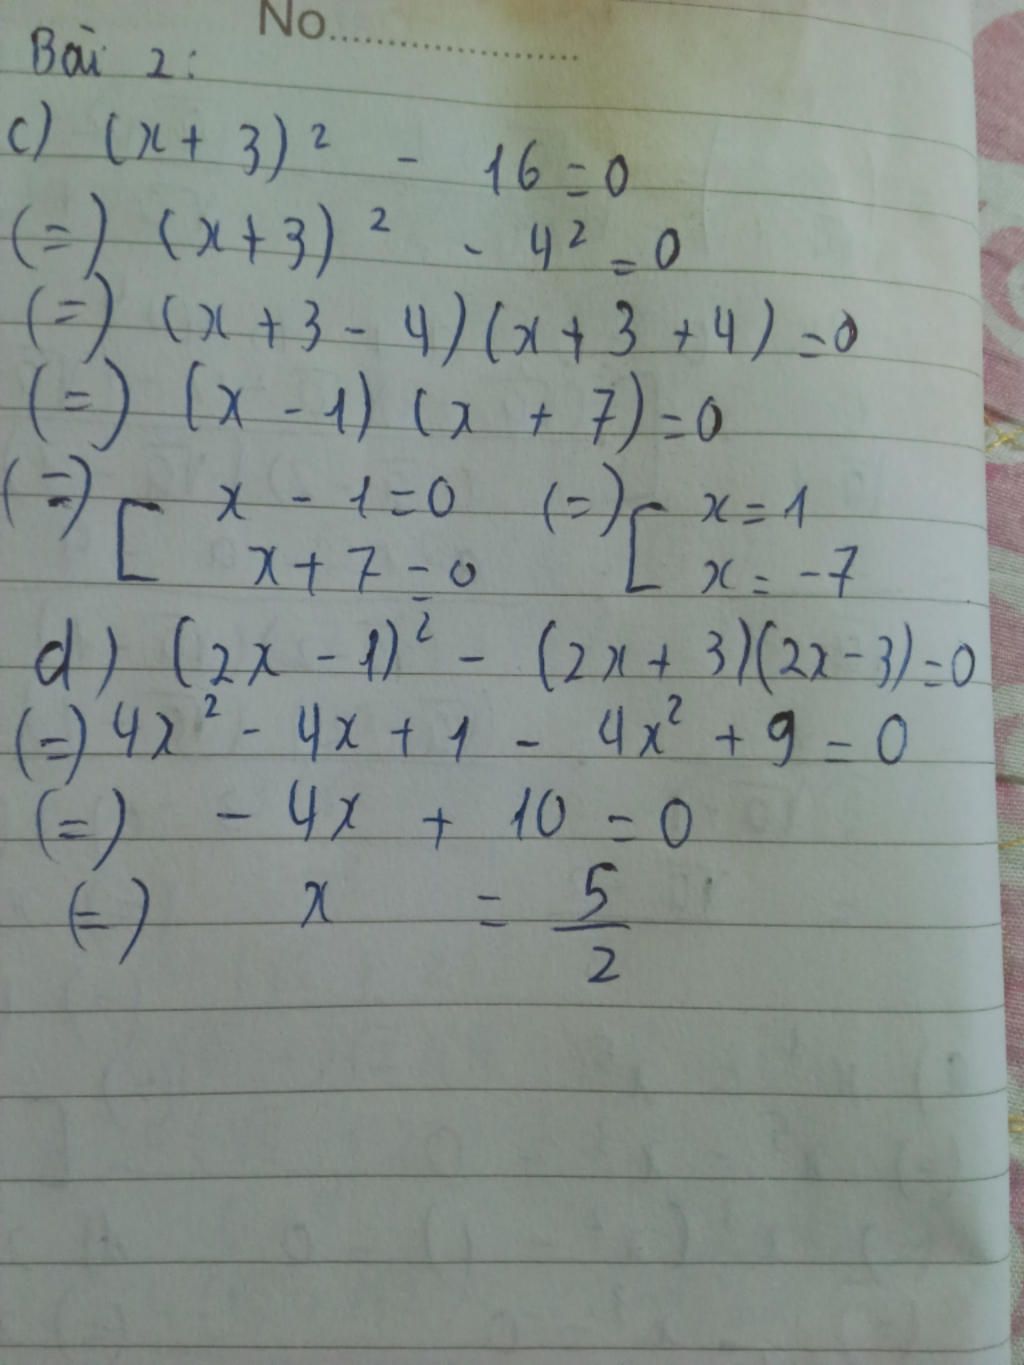 No....................
Bài 2:
c) (x + 3)² - 16 = 0
(=) (x+3)² - 4² = 0
(=) (x + 3 - 4)(x + 3 + 4) = 0
(=) (x - 1) (x + 7) = 0
(=) [ x - 1 = 0 (=) [ x = 1
x + 7 = 0 x = -7
d) (2x - 1)² - (2x + 3)(2x - 3) = 0
(=) 4x² - 4x + 1 - 4x² + 9 = 0
(=) - 4x + 10 = 0
(=) x = 5/2